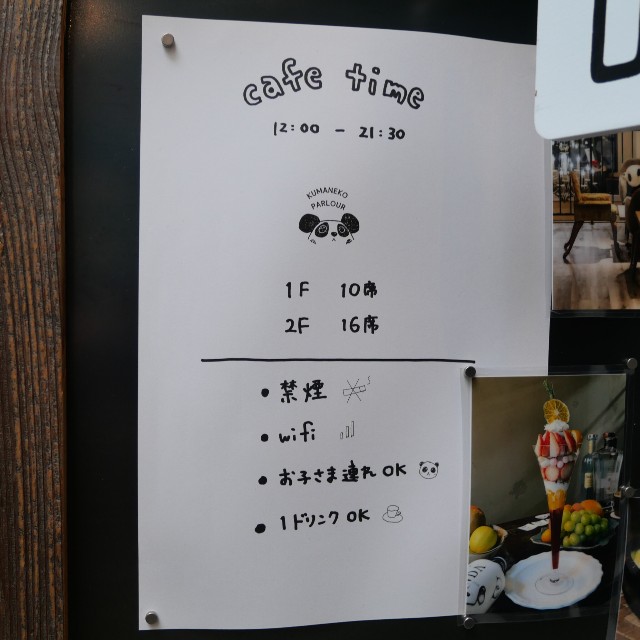 cafe time
12:00 - 21:30
KUMANEKO
PARLOUR
1F 10席
2F 16席
• 禁煙
• wifi
• お子さま連れ OK
• 1ドリンク OK